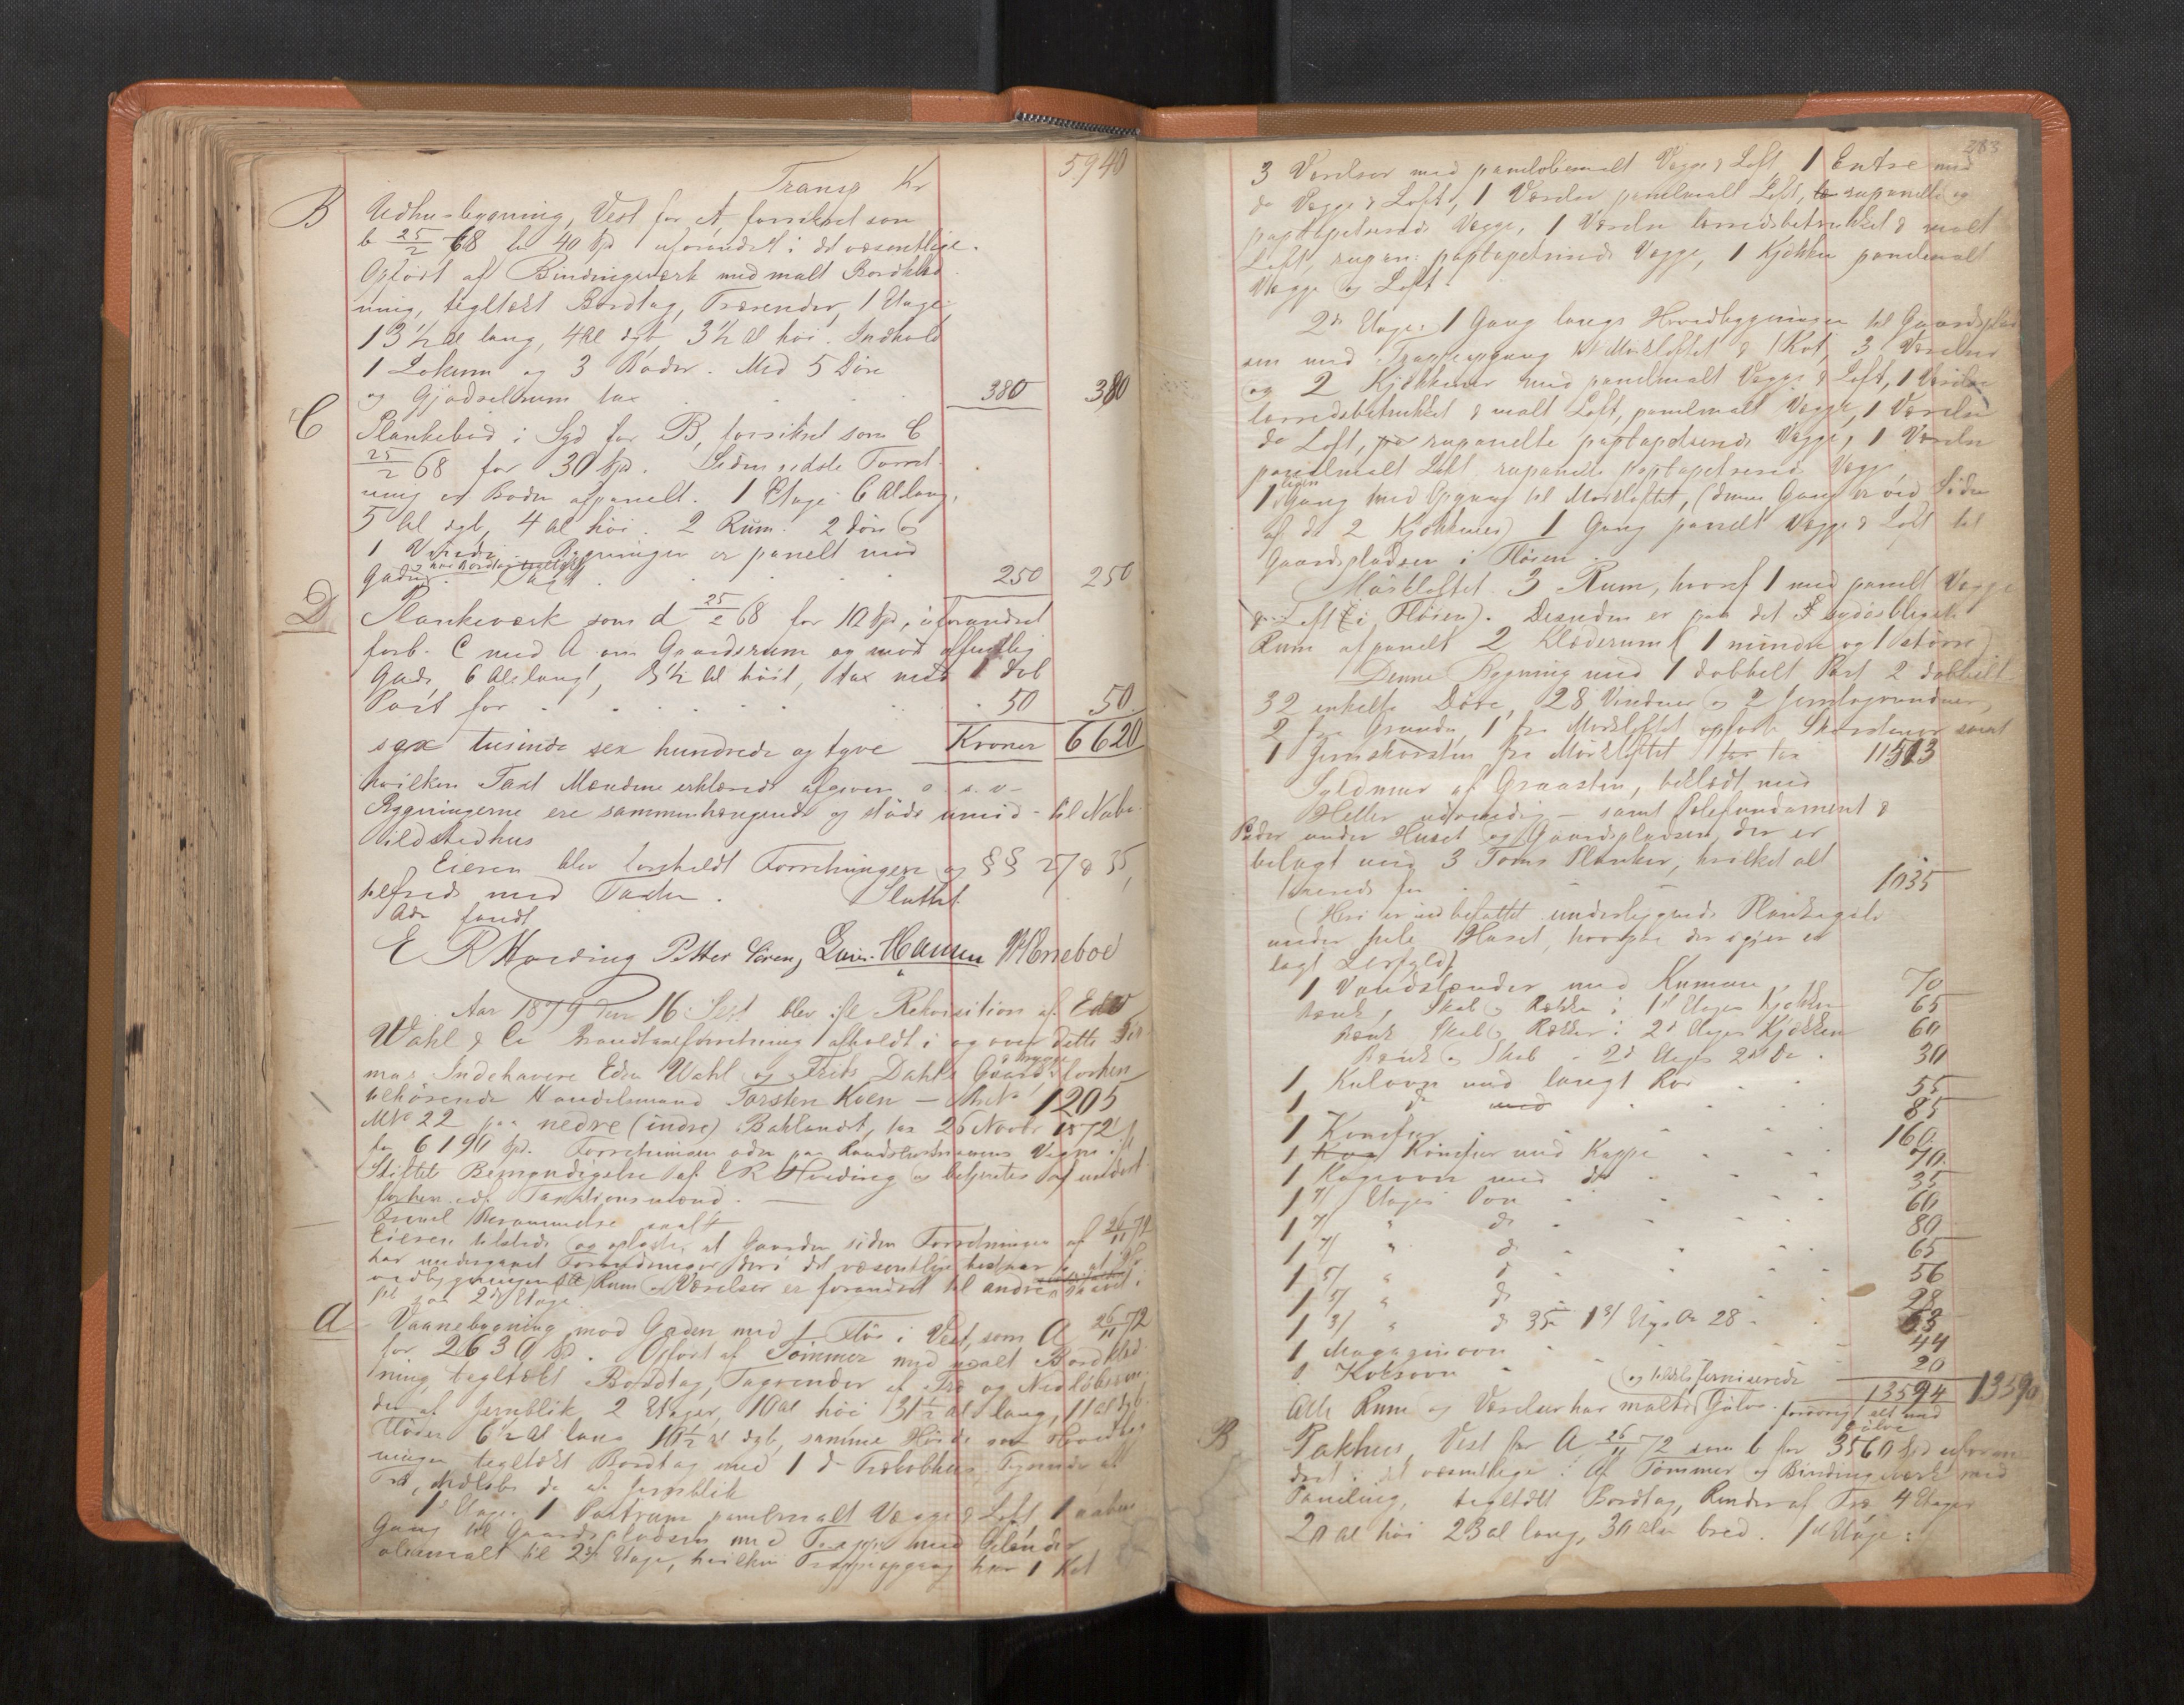 Transp Kr 5940
B Udhusbygning, Vest for A forsikret som
b 25/2 68 for 40 Spd uforandret i det væsentlige.
Opført af Bindingsværk med malt Bordklæd
ning, tegltækt Bordtag, Trærender, 1 Etage
13 1/2 al lang, 4 al dyb, 3 1/2 al høi. Indhold
1 Lokum og 3 Boder. Med 5 Døre
og Gjødselrum tax 380 380
C Plankebod i Syd for B, forsikret som C
25/2 68 for 30 Spd. Siden sidste Forret
ning er Boden afpanelt. 1 Etage 6 Al lang,
5 Al dyb, 4 al høi. 2 Rum. 2 Døre og
1 Vindu. Bygningen er panelt mod
Gaden. Taxt 250 250
D Plankeværk som d 25/2 68 for 10 Spd, uforandret
forb. C med A om Gaardsrum og mod offentlig
Gade 6 Al langt, 3 1/2 Al høit, tax med 1 dob
Port for 50 50
sex tusinde sex hundrede og tyve Kroner 6620
hvilken Taxt Mændene erklærede afgiven o. s. v.
Bygningerne ere sammenhængende og støde umid. til Nabo
Ildstedhus
Eieren blev foreholdt Forretningen og §§ 27 & 35,
tilfreds med Taxten. Sluttet
E R Hveding Petter Sørens, Hansen
Aar 1879 den 16 Sept blev ifl Rekvisition af Edw
Wahl & Co Brandtaxtforretning afholdt i og over dette Fir
mas Indehavere Edw Wahl og Frits Dahls Gaard & Brygge forhen
tilhørende Handelsmand Torsten Koen — Ass No 1205
MNo 22 paa nedre (indre) Baklandt, tax 26 Novbr 1872
for 6190 Spd. Forretningen adm paa Vegne ifl
Stiftets Bemyndigelse af E R Hveding og betjentes af undert
forhen edf. Taxtionsmænd.
Eieren tilstede og oplyste, at Gaarden siden Forretningen af 26/11 72
har undergaaet Forandringer deri det væsentlige bestaar i at
ovedbygningen Rum og Værelser er forandret til andre
paa 2den Etage.
A Vaanebygning mod Gaden med 1 Fløi i Vest, som A 26/11 72
for 2630 Spd. Opført af Tømmer med malt Bordklæd
ning, tegltækt Bordtag, Tagrender af Træ og Nedløbsren
der af Jernblik 2 Etager, 10 al høi 31 1/2 al lang, 11 al dyb.
Fløien 6 1/2 al lang 10 1/2 al dyb, samme Høide som Hovedbyg
ningen tegltækt Bordtag med 1 Tagrender af
Træ, Nedløbs do af Jernblik
1ste Etage. 1 Portrum panelmalt Vægge & Loft 1 aaben
Gang til Gaardspladsen med Trappe med Gelænder
oliemalt til 2den Etage, hvilken Trappeopgang har 1 Kot
283
3 Værelser med panelmalt Vægge & Loft, 1 Entre med
do Vægge & Loft, 1 Værelse panelmalt Loft, rupanelte og
paptapetserede Vægge, 1 Værelse lærredsbetrukket & malt
Loft, rupan: paptapetserede Vægge, 1 Kjøkken panelmalt
Vægge og Loft.
2den Etage: 1 Gang langs Hovedbygningen til Gaardsplad
sen med Trappeopgang til Mørkloftet & 1 Kot, 3 Værelser
og 2 Kjøkkener med panelmalt Vægge & Loft, 1 Værelse
lærredsbetrukket & malt Loft, panelmalt Vægge, 1 Værelse
do Loft, rupanelte paptapetserede Vægge, 1 Værelse
panelmalt Loft rupanelte paptapetserede Vægge,
1 liden Gang med Opgang til Mørkloftet, (denne Gang er ved Siden
af de 2 Kjøkkener) 1 Gang panelt Vægge & Loft til
Gaardspladsen i Fløien.
Mørkloftet 3 Rum, hvoraf 1 med panelt Vægge
& Loft (i Fløien). Desuden er paa det sydøstligste
Rum afpanelt 2 Klæderum (1 mindre og 1 større)
Denne Bygning med 1 dobbelt Port 2 dobbelt
32 enkelte Døre, 28 Vinduer og 2 Jerntagvinduer,
2 fra Grunden, 1 fra Mørkloftet opførte Skorstener samt
1 Jernskorsten fra Mørkloftet tax 11513
Syldmur af Graasten, beklædt med
Heller udvendig — samt Pælefundament &
Peder under Huset og Gaardspladsen, der er
belagt med 3 Toms Planker, hvilket alt
taxeredes for 1035
(Heri er indbefattet underliggende Plankegulv
under hele Huset, hvorpaa der igjen er
lagt Lerfyld)
1 Vandstænder med Kumme 70
Bænk, Skab & Rækker i 1ste Etages Kjøkken 65
Bænk Skab & Rækker i 2den Etages Kjøkken 60
Bænk og Skab i 2den Etages 2det Do 30
1 Kulovn med langt Rør 55
1 do 85
1 Komfur 160
1 Komfur med Kappe 70
1 Kogeovn med do 35
1 Etages Ovn 60
1 " do 80
1 " do 65
1 " do 56
1 " do 28
1 3/ " do 35 1 3/ Etgs Do 28 63
1 Magasinovn 44
1 Koksovn 20
13594 13590
Alle Rum og Værelser har malte og tildels ferniserede Gulve.
B Pakhus, Vest for A 26/11 72 som b for 3560 Spd uforan
dret i det væsentlige: Af Tømmer og Bindingsværk med
Paneling, tegltækt Bordtag, Render af Træ 4 Etager
20 al høi 23 al lang, 30 alen bred. 1ste Etage: